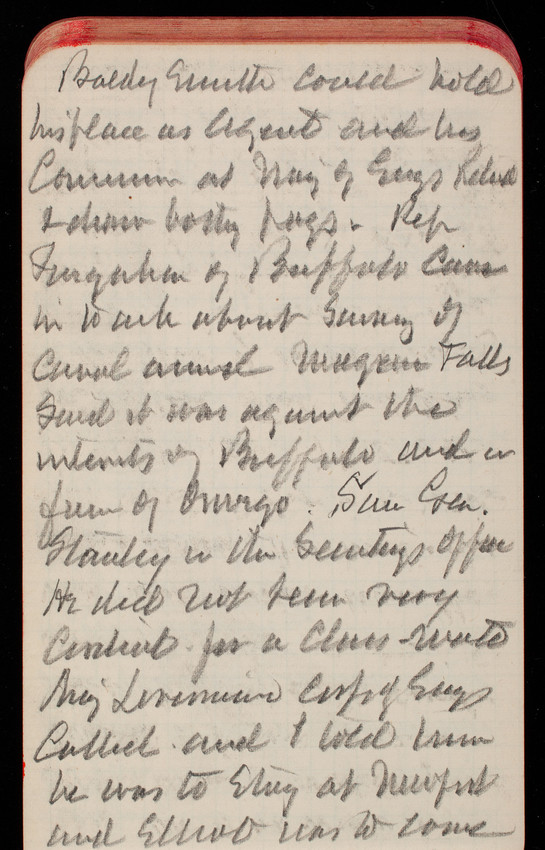 Baldy Smith could hold
his place as Agent and his
Commission as Maj of Engs Retired
& draw both pays. Rep
Farquhar of Buffalo Came
in to ask about Survey of
Canal around Niagara Falls
Said it was against the
interests of Buffalo and in
favor of Oswego. Saw Gen.
Stanley in the Secretarys Office
He did not seem very
Cordial for a Class-mate
Maj Livermore Corps of Engs
Called and I told him
he was to Stay at Newport
and Elliot was to come